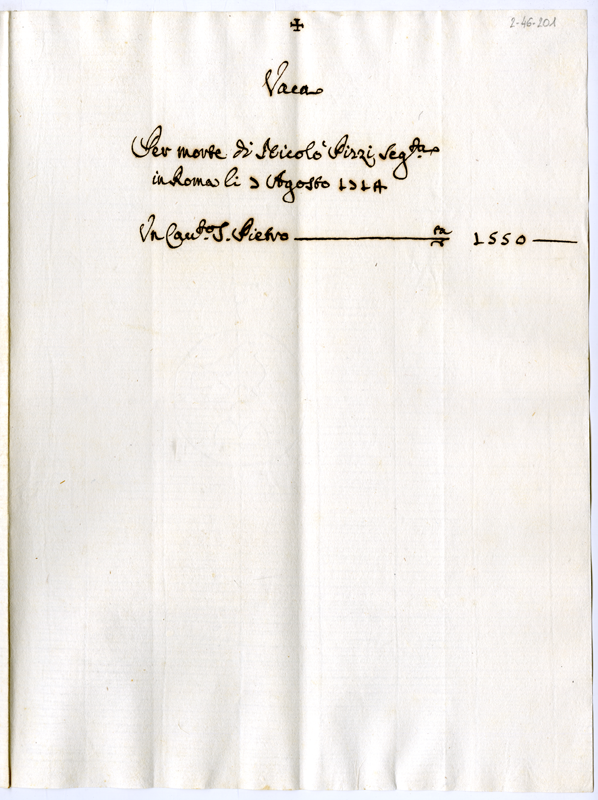 ✠
2-46-201
Vaca
Per morte di Nicolò Pizzi, seg.ta
in Roma li 3 Agosto
Un Cau.to S. Pietro 1550